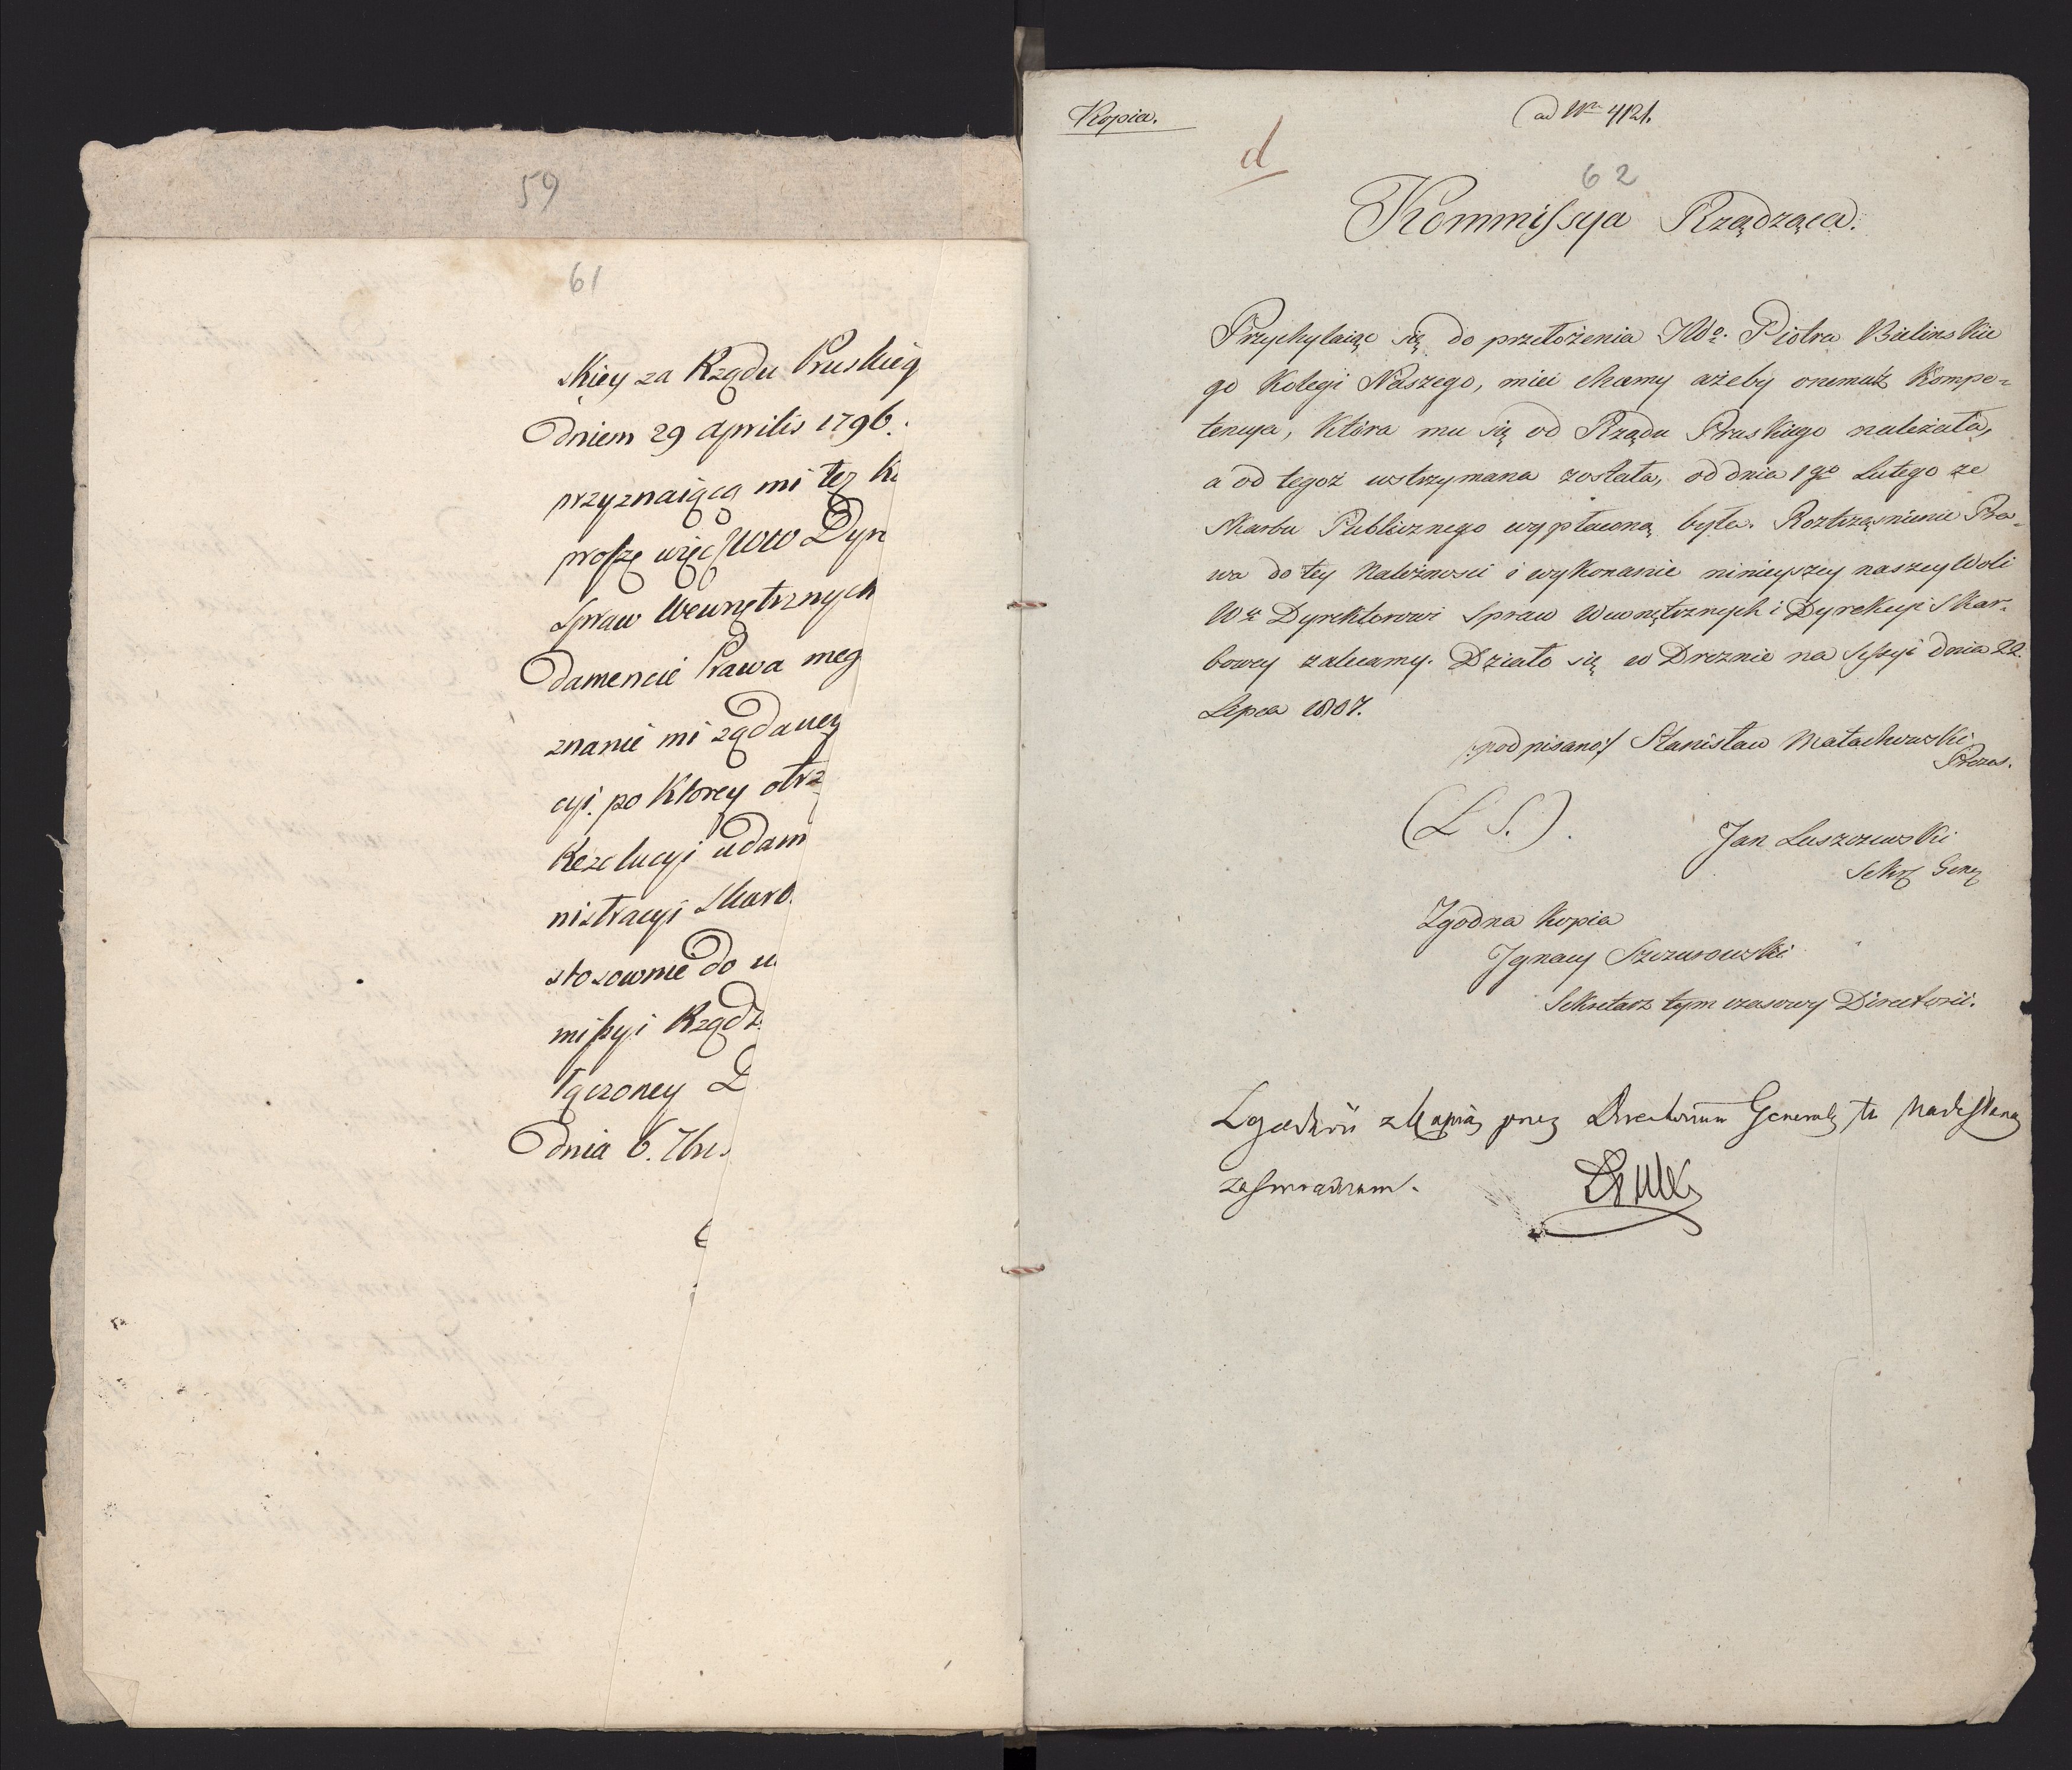 59
61
skiey za Rządu Pruskieg
dniem 29 aprilis 1796.
przyznaiącą mi tę K
proszę więc JWW Dyr
Spraw Wewnętrznych
damencie Prawa meg
znanie mi żądaney
cyi. po ktorey otrz
Rezolucyi udam
nistracyi Skarb.
stosownie do u
missyi Rządz
łączoney D
dnia 6. 7br.
Kopia.
ad Nrm 4121.
d
62
Kommissya Rządząca.
Przychylaiąc się do przełożenia JWo. Piotra Bielinskie
go Kolegi Naszego, miei chcemy ażeby onemuż Kompe=
tencya, która mu się od Rządu Pruskiego należała,
a od tegoż wstrzymana została, od dnia 1go Lutego ze
Skarbu Publicznego wypłaconą była. Roztrząśnienie Pra=
wa do tey Należności i wykonanie ninieyszey naszey Woli
Wu Dyrektorowi Spraw Wewnętrznych i Dyrekcyi Skar=
bowey zalecamy. Działo się w Dreznie na Sessyi dnia 22.
Lipca 1807.
/:podpisano:/ Stanisław Małachowski
Prezes.
(L S.).
Jan Łuszczewski
Sekrz Geny
Zgodna Kopia
Ignacy Szczurowski
Sekretarz tymczasowy Directorii.
Zgodność z kopią przez Directorium Generale tu nadesłaną
zaświadczam.